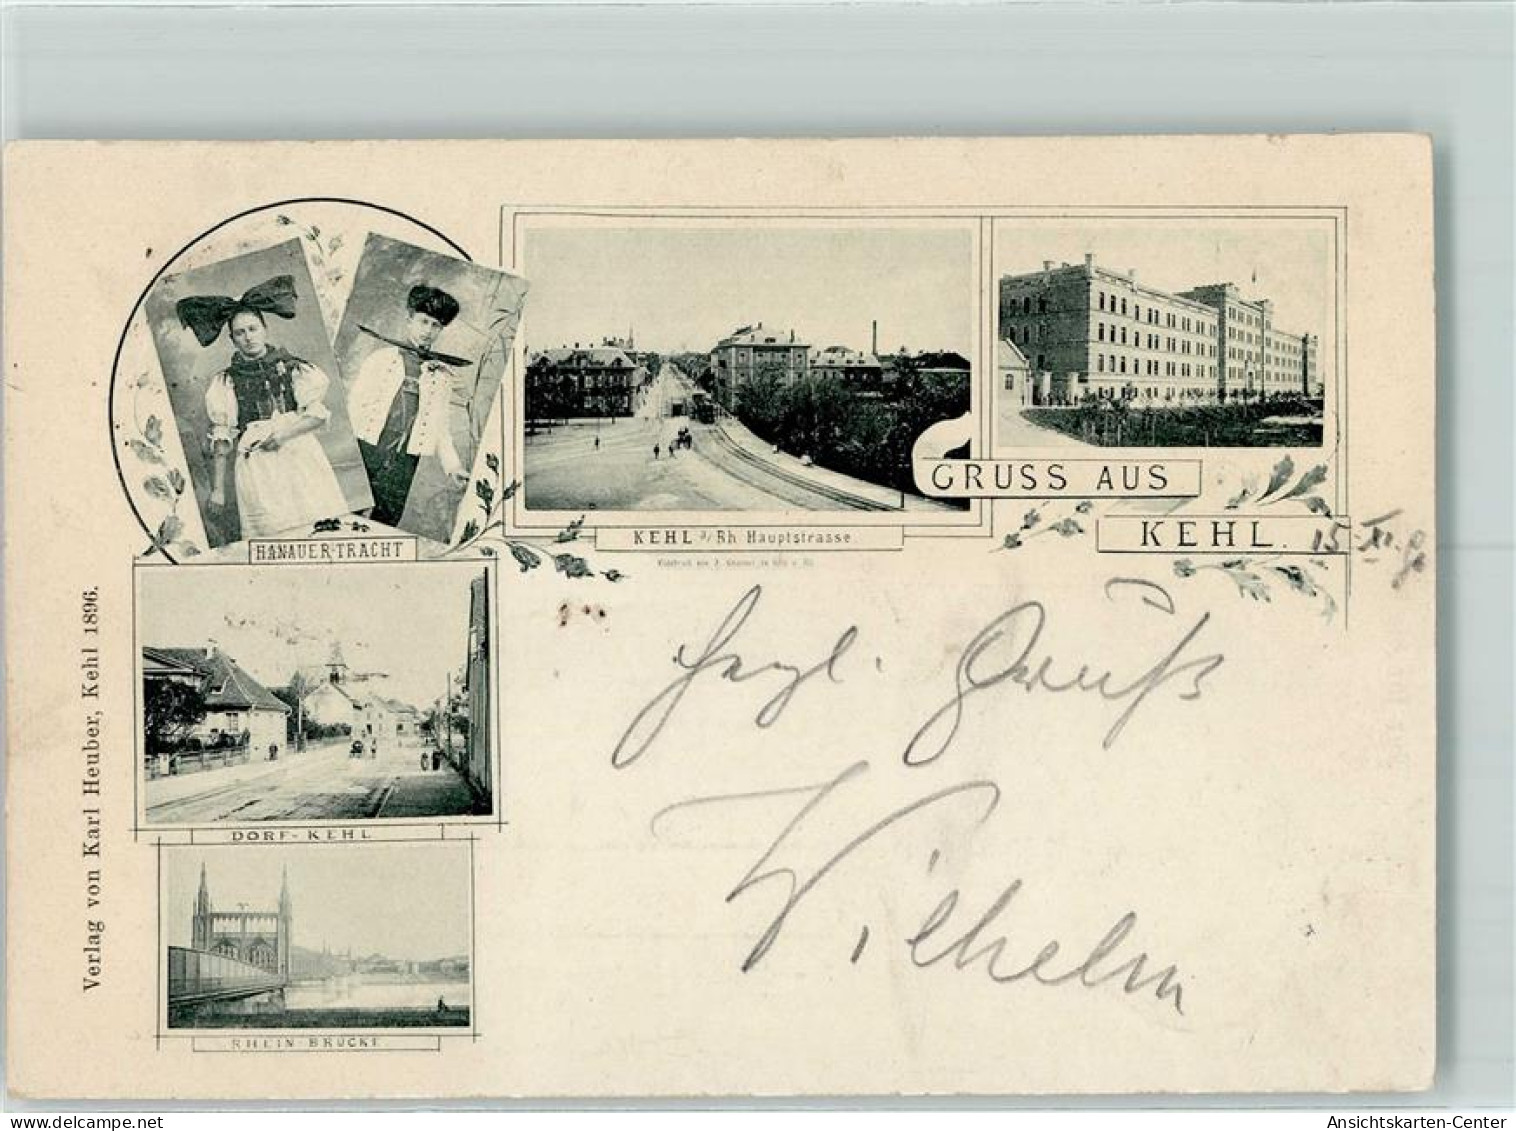 HANAUER-TRACHT
KEHL a/Rh Hauptstrasse.
GRUSS AUS
KEHL.
15-XI.
DORF-KEHL
RHEIN-BRÜCKE
Verlag von Karl Heuber, Kehl 1896.
Herzl. Gruß
Wilhelm
www.oldthing.de
Ansichtskarten-Center